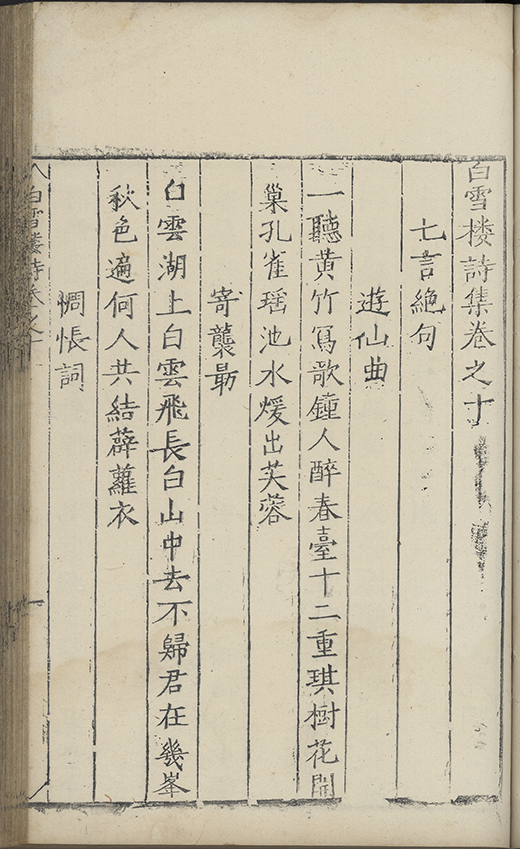 白雪楼詩集卷之十
七言絶句
遊仙曲
一聽黃竹寫歌鍾人醉春臺十二重琪樹花開
巢孔雀瑶池水煖出芙蓉
寄襲勗
白雲湖上白雲飛長白山中去不歸君在幾峯
秋色遍何人共結薜蘿衣
惆悵詞
白雪楼詩卷之十